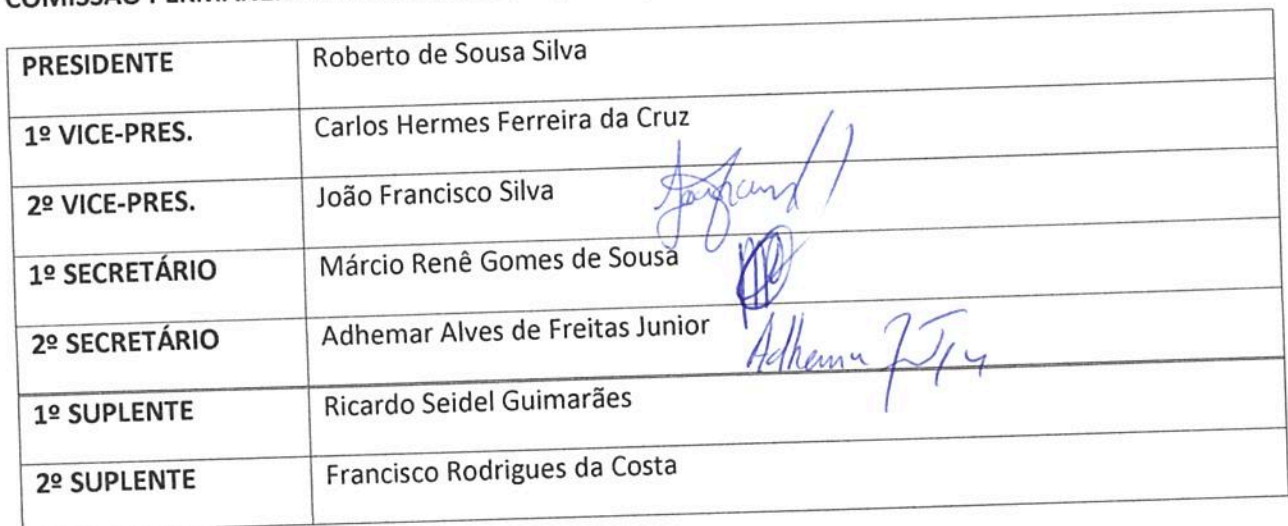 PRESIDENTE Roberto de Sousa Silva
1º VICE-PRES. Carlos Hermes Ferreira da Cruz
2º VICE-PRES. João Francisco Silva
1º SECRETÁRIO Márcio Renê Gomes de Sousa
2º SECRETÁRIO Adhemar Alves de Freitas Junior
1º SUPLENTE Ricardo Seidel Guimarães
2º SUPLENTE Francisco Rodrigues da Costa